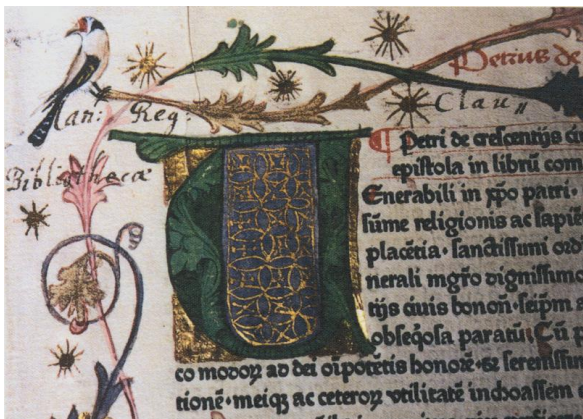 Petrus de
Can: Reg: Clau"
Bibliothecæ
Petri de crescentijs ci
epistola in librū com
Venerabili in xp̄o patri
sūme religionis ac sapiē
placētia. sanctissimi ord
nerali mgr̄o dignissimo
tijs ciuis bonoñ. seip̄m
obseq̄osa paratū. Cū p
co modoꝝ ad dei oīpotētis honorē. ⁊ serenissim
tionē. meiqꝫ ac ceteroꝝ vtilitatē inchoassem